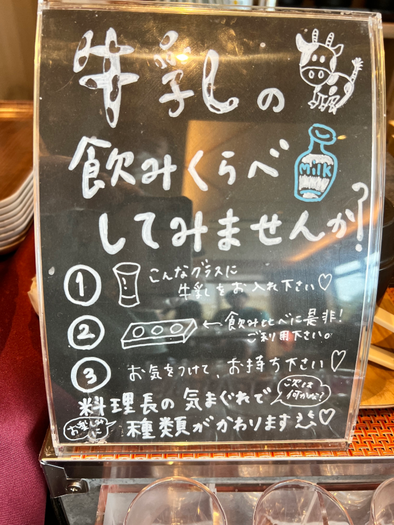 牛乳の
飲みくらべ
MilK
してみませんか?
① こんなグラスに
牛乳をお入れ下さい♡
② ←飲み比べに是非!
ご利用下さい。
③ お気をつけて、お持ち下さい♡
料理長の気まぐれで
次は何かな?
お楽しみに
種類がかわります♡